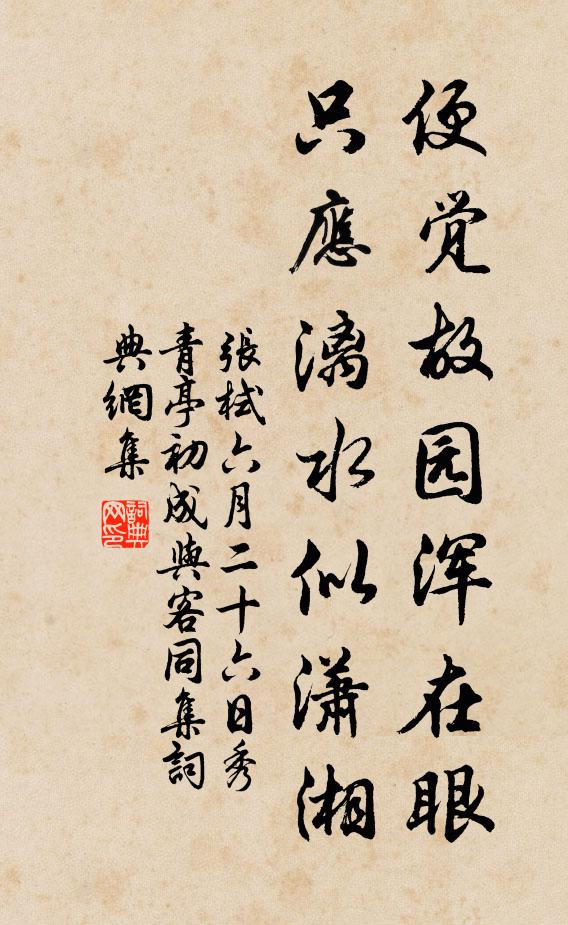 便觉故园浑在眼
只應漓水似潇湘
張栻六月二十六日秀
青亭初成與客同集詞
典網集
詞典网印